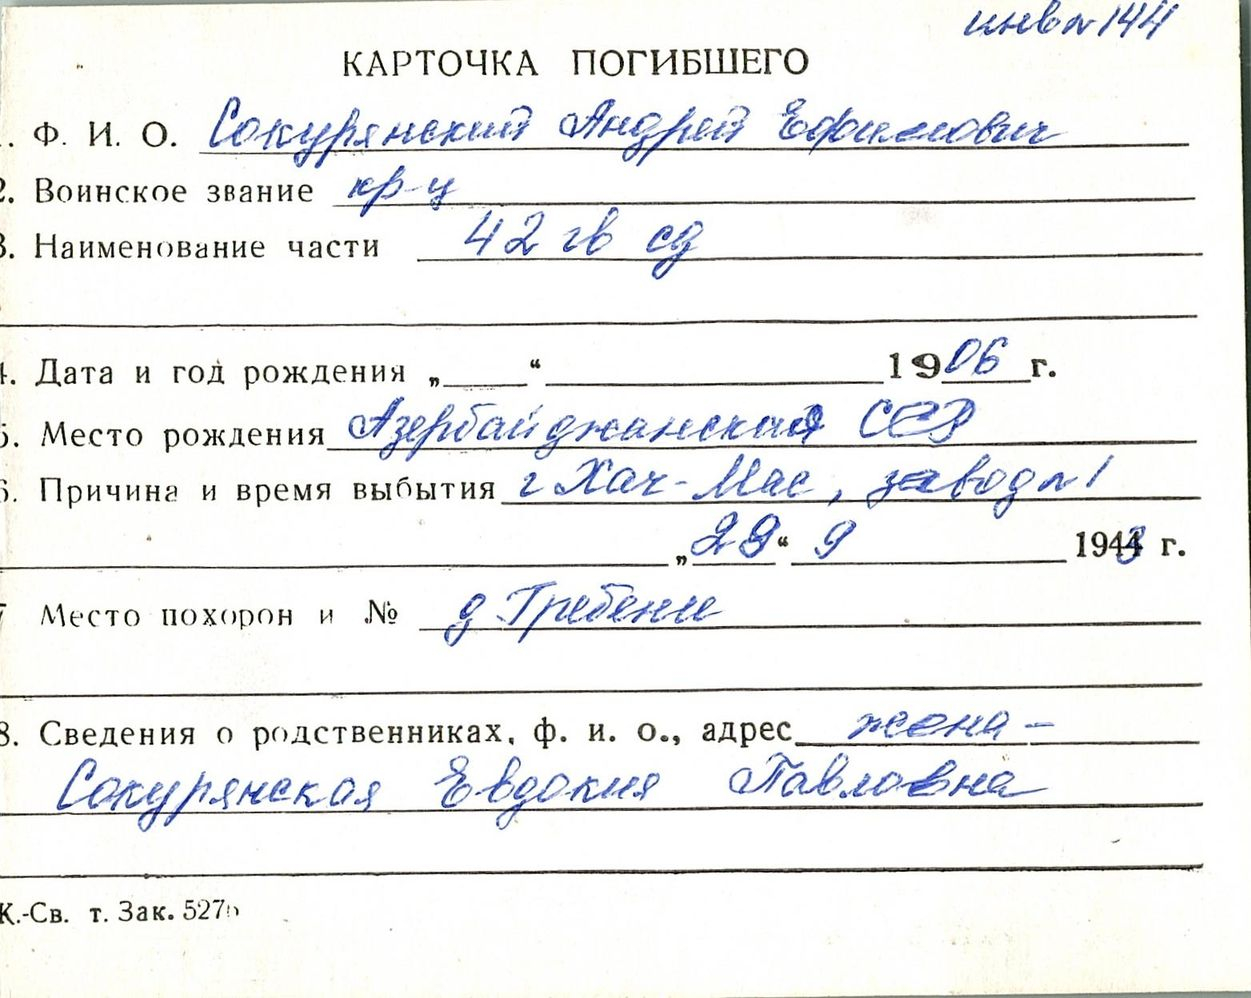 инв № 144
КАРТОЧКА ПОГИБШЕГО
. Ф. И. О. Сокурянский Андрей Ефимович
2. Воинское звание кр-ц
3. Наименование части 42 гв сд
4. Дата и год рождения „ “ 1906 г.
5. Место рождения Азербайджанская ССР
6. Причина и время выбытия г Хач-Мас, завод № 1
„29“ 9 1943 г.
7 Место похорон и № д. Гребени
8. Сведения о родственниках, ф. и. о., адрес жена -
Сокурянская Евдокия Павловна
К.-Св. т. Зак. 527